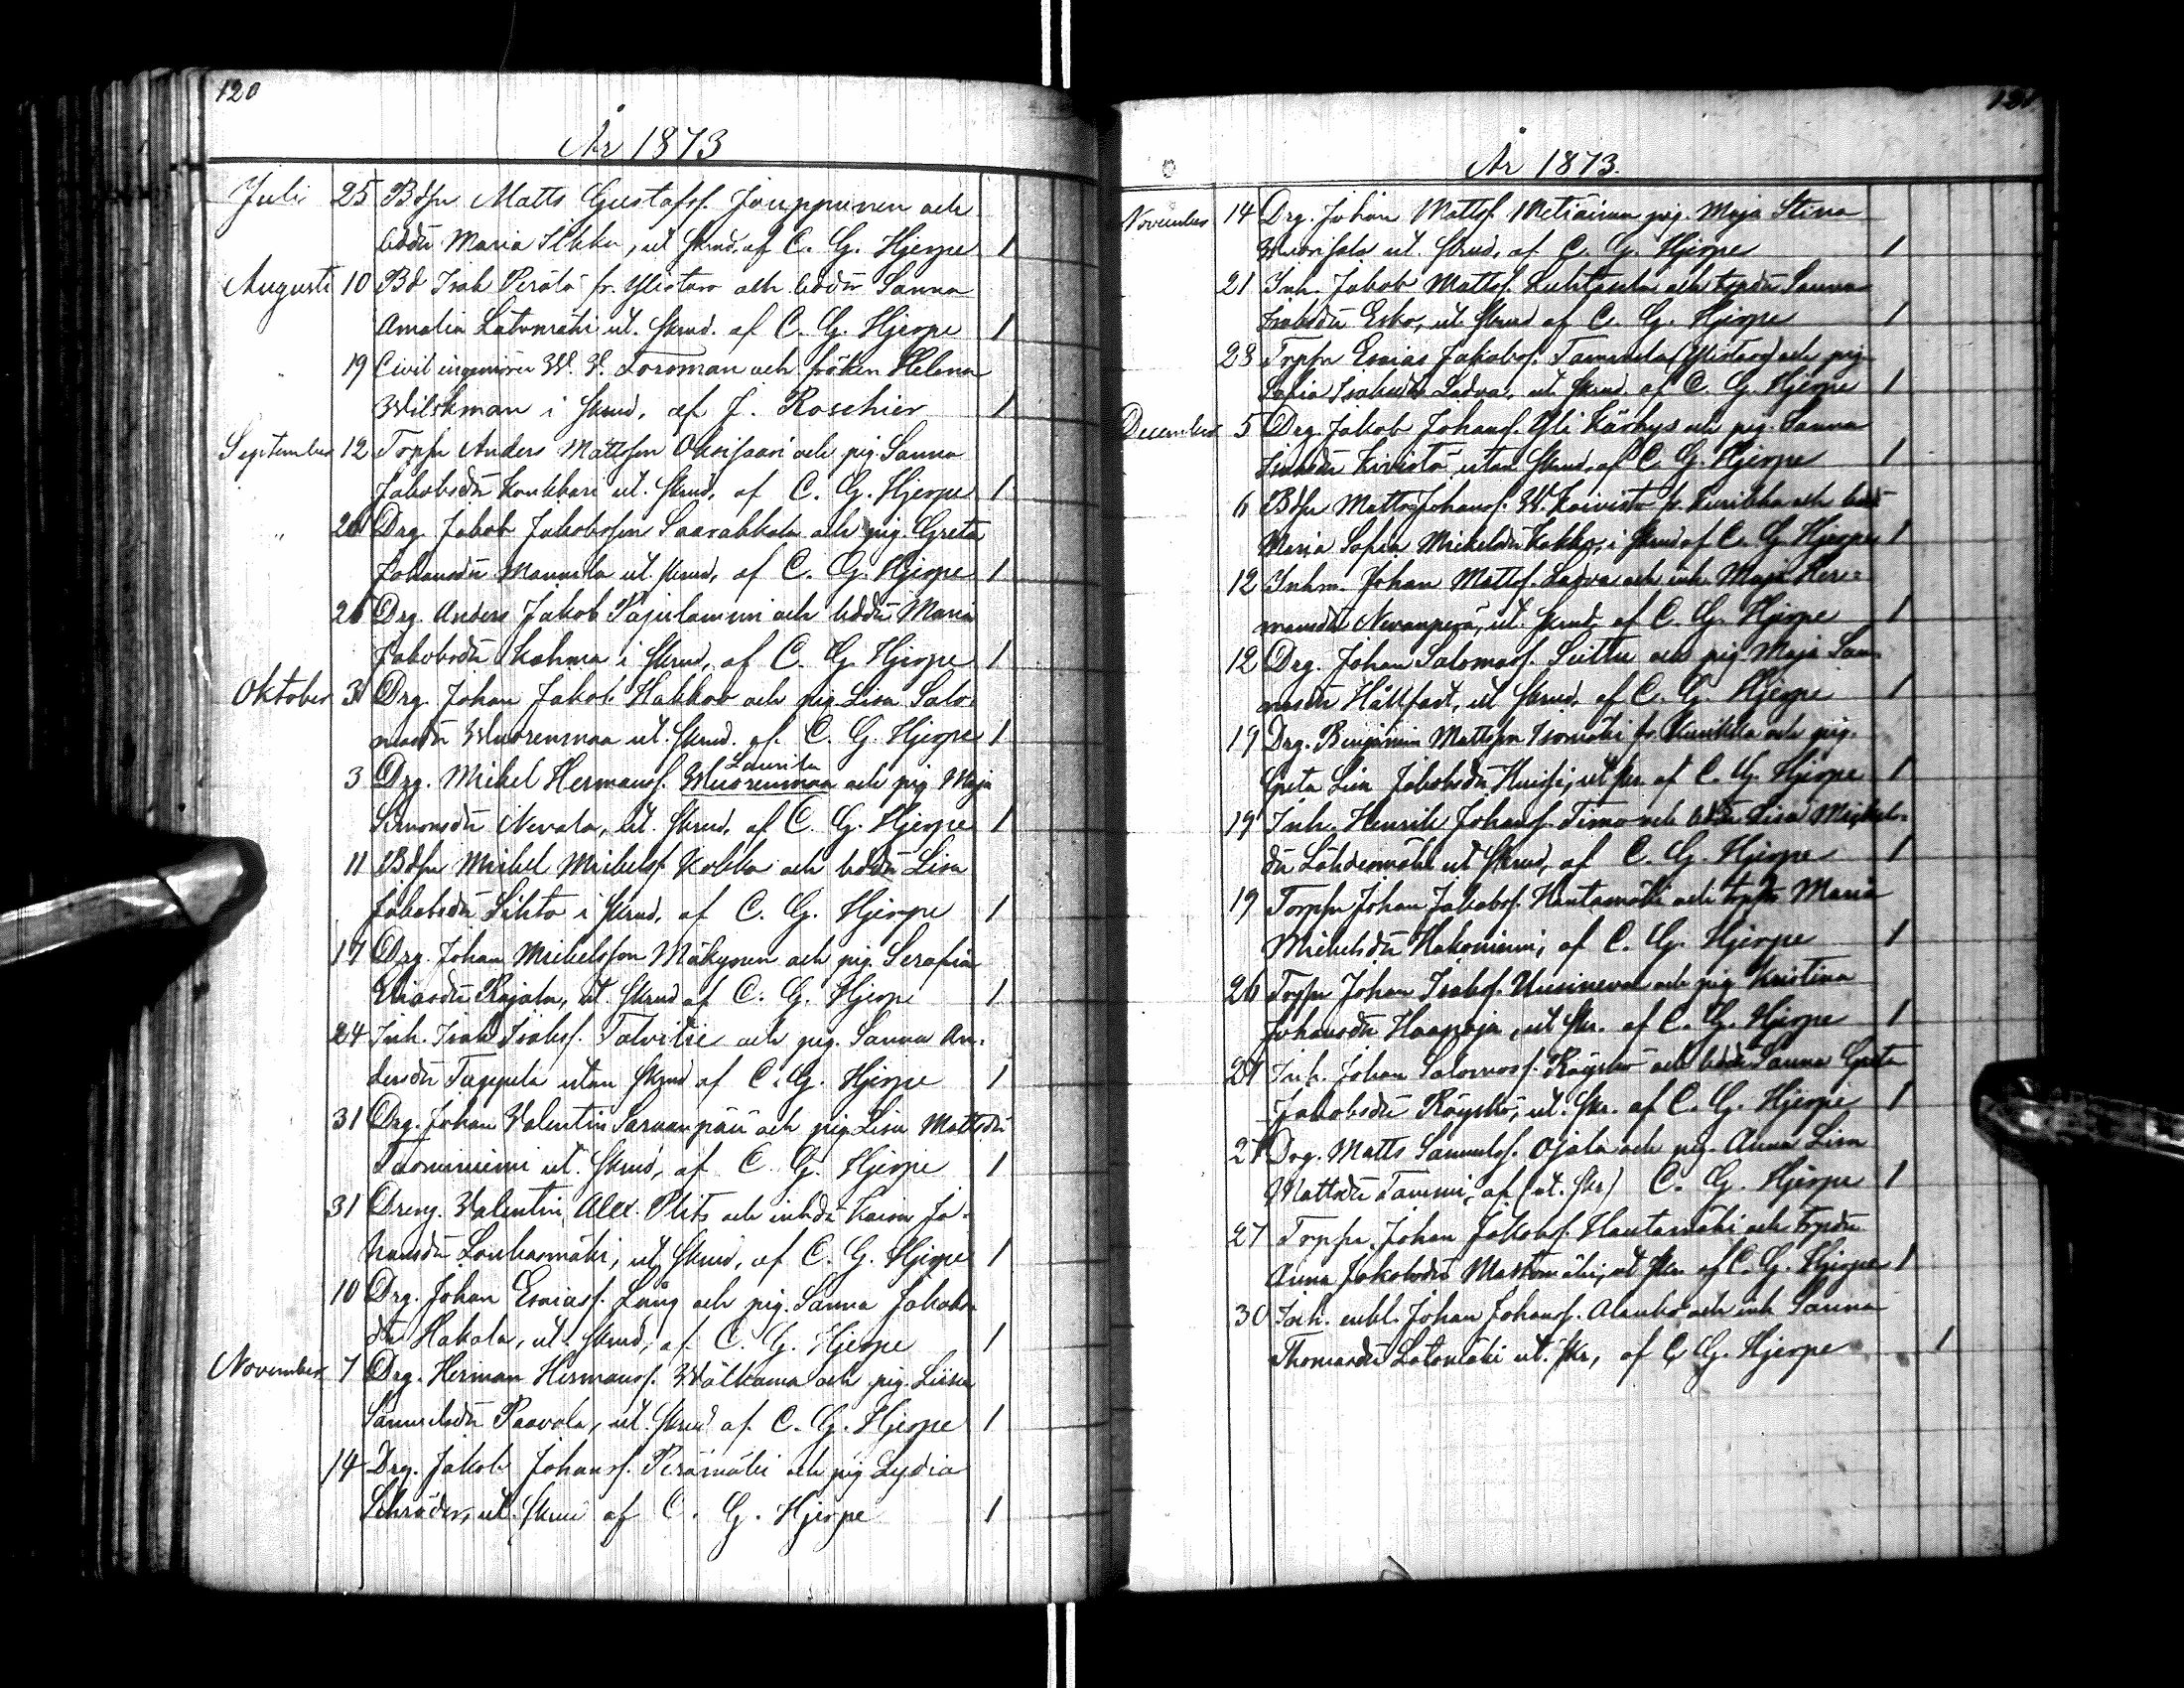 120
År 1873
Juli 25 Bdsn Matts Gustafss. Jouppinen och
bddr Maria Ilkka, ut. skrud. af C. G. Hjerpe 1
Augusti 10 Bd Isak Perälä fr. Ylistaro och bddr Sanna
Amalia Latvamäki ut. skrud. af C. G. Hjerpe 1
" 19 Civil ingeniören W. V. Forsman och fröken Helena
Wilskman i skrud, af J. Roschier 1
September 12 Torpr Anders Mattsson Oksisaari och pig. Sanna
Jakobsdr Koukkari ut. skrud, af C. G. Hjerpe 1
" 26 Drg. Jakob Jakobsson Saarakkala och pig. Greta
Johansdr Mannila ut. skrud, af C. G. Hjerpe 1
26 Drg. Anders Jakob Pajulammi och bddr Maria
Jakobsdr Kahma i skrud, af C. G. Hjerpe 1
Oktober 3 Drg. Johan Jakob Hakkov och pig Lisa Salo-
monsdr Wuorenmaa ut. skrud. af C. G. Hjerpe 1
Laurila
3 Drg. Mikel Hermanss. Wuorenmaa och pig Maja
Simonsdr Nevala, ut. skrud, af C. G. Hjerpe 1
11 Bdsn Mikel Mickelss. Kokko och bddr Lisa
Jakobsdr Sihto i skrud, af C. G. Hjerpe 1
17 Drg. Johan Mickelsson Mäkynen och pig. Serafia
Eliasdr Rajala, ut. skrud af C. G. Hjerp 1
24 Inh. Isak Isakss. Talvitie och pig. Sanna An-
dersdr Tuppela utan skrud af C. G. Hjerpe 1
31 Drg. Johan Valentin Sarvanpää och pig Lisa Mattsdr
Tuominiemi ut. skrud, af C. G. Hjerpe 1
31 Dreng. Valentin Alex. Plits och inhdr Kaisa Jo-
hansdr Loukasmäki, ut skrud, af C. G. Hjerpe 1
10 Drg. Johan Esaiass. Lång och pig. Sanna Jakobs-
dr Hakala, ut. skrud, af C. G. Hjerpe 1
November 7 Drg. Herman Hermanss. Wälkama och pig. Liisa
Samuelsdr Paavola, ut. skrud af C. G. Hjerpe 1
14 Drg. Jakob Johanss. Perämäki och pig Lydia
Schröder, ut. skrud af C. G. Hjerpe 1
121
År 1873.
November 14 Drg. Johan Mattss. Metiäinen pig. Maja Stina
ut. skrud, af C. G. Hjerpe 1
21 Inh. Jakob Mattss. Kuhtanka och torpdr Sanna
Isaksdr Esko, ut. skrud af C. G. Hjerpe 1
28 Torpr Esaias Jakobss. Tamarila (Ylistaro) och pig.
Sofia Isaksdr Ladva, ut. skrud. af C. G. Hjerpe 1
December 5 Drg. Jakob Johanss. Yli Kärhys och pig. Sanna
Isaksdr Kivistö utan skrud, af C. G. Hjerpe 1
6 Bdsn Matts Johanss. W. Koivisto fr. Kurikka och bddr
Maria Sofia Mickelsdr Kokko, i skrud af C. G. Hjerpe 1
12 Inhm. Johan Mattss. Ladva och inh. Maja Her-
mansdr Nevanperä, ut. skrud af C. G. Hjerpe 1
12 Drg. Johan Salomonss. Suttu och pig. Maja Sam-
Hållfast, ut skrud, af C. G. Hjerpe 1
19 Drg. Benjamin Mattsson Isomäki fr. Kurikka och pig.
Greta Lisa Jakobsdr ut skr af C. G. Hjerpe 1
19 Inh. Henrik Johanss. Timo och bddr Lisa Mickels-
dr Lähdesmäki ut skrud, af C. G. Hjerpe 1
19 Torpr Johan Jakobss. Hautamäki och torpdr Maria
Mickelsdr Hakoniemi, af C. G. Hjerpe 1
26 Torpr Johan Isakss. Uusineva och pig Kristina
Johansdr Haapoja, ut skr. af C. G. Hjerpe 1
27 Inh. Johan Salomonss. Röyskö och bddr Sanna Greta
Jakobsdr Röyskö, ut. skr. af C. G. Hjerpe 1
27 Drg. Matts Samuelss. Ojala och pig. Anna Lisa
Mattsdr Tammi, af (ut. skr) C. G. Hjerpe 1
27 Torpr. Johan Jakobss. Hautamäki och torpdr
Anna Jakobsdr Mastomäki, ut skr af C. G. Hjerpe 1
30 Inh. enkl. Johan Johanss. Alanko och inh Sanna
Thomasdr Latomäki ut. skr, af C. G. Hjerpe 1